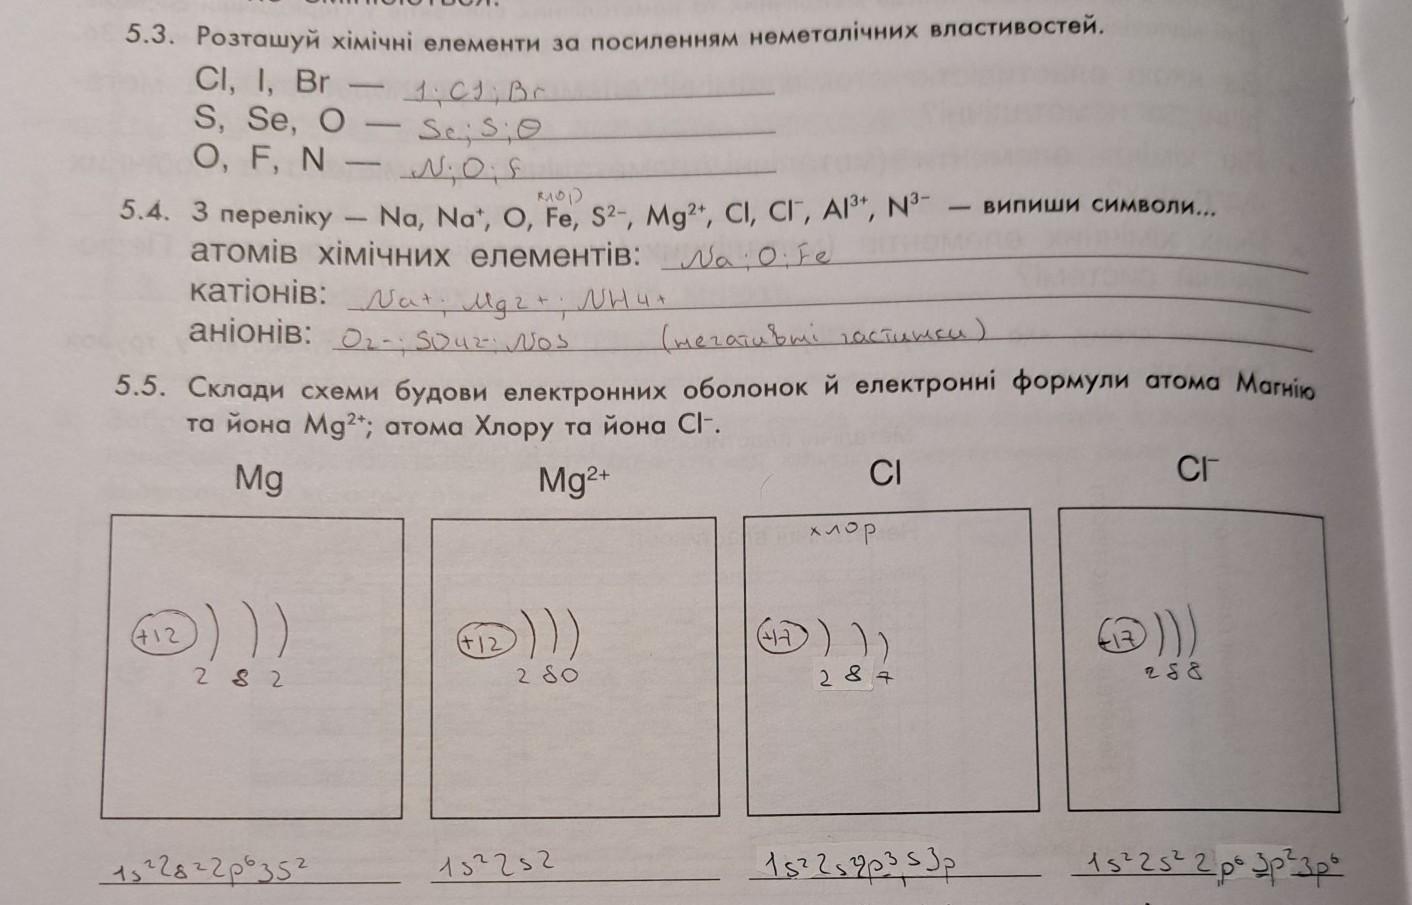 5.3. Розташуй хімічні елементи за посиленням неметалічних властивостей.
Cl, I, Br — I; Cl; Br
S, Se, O — Se; S; O
O, F, N — N; O; F
хлор
5.4. З переліку — Na, Na⁺, O, Fe, S²⁻, Mg²⁺, Cl, Cl⁻, Al³⁺, N³⁻ — випиши символи...
атомів хімічних елементів: Na; O; Fe
катіонів: Na+; Mg2+; NH4+
аніонів: O2-; SO42-; NO3 (негативні частинки)
5.5. Склади схеми будови електронних оболонок й електронні формули атома Магнію
та йона Mg²⁺; атома Хлору та йона Cl⁻.
Mg Mg²⁺ Cl Cl⁻
хлор
+12 +12 +17 +17
2 8 2 2 8 0 2 8 7 2 8 8
1s²2s²2p⁶3s² 1s²2s2 1s²2s2p³s3p 1s²2s²2p⁶3p²3p⁶